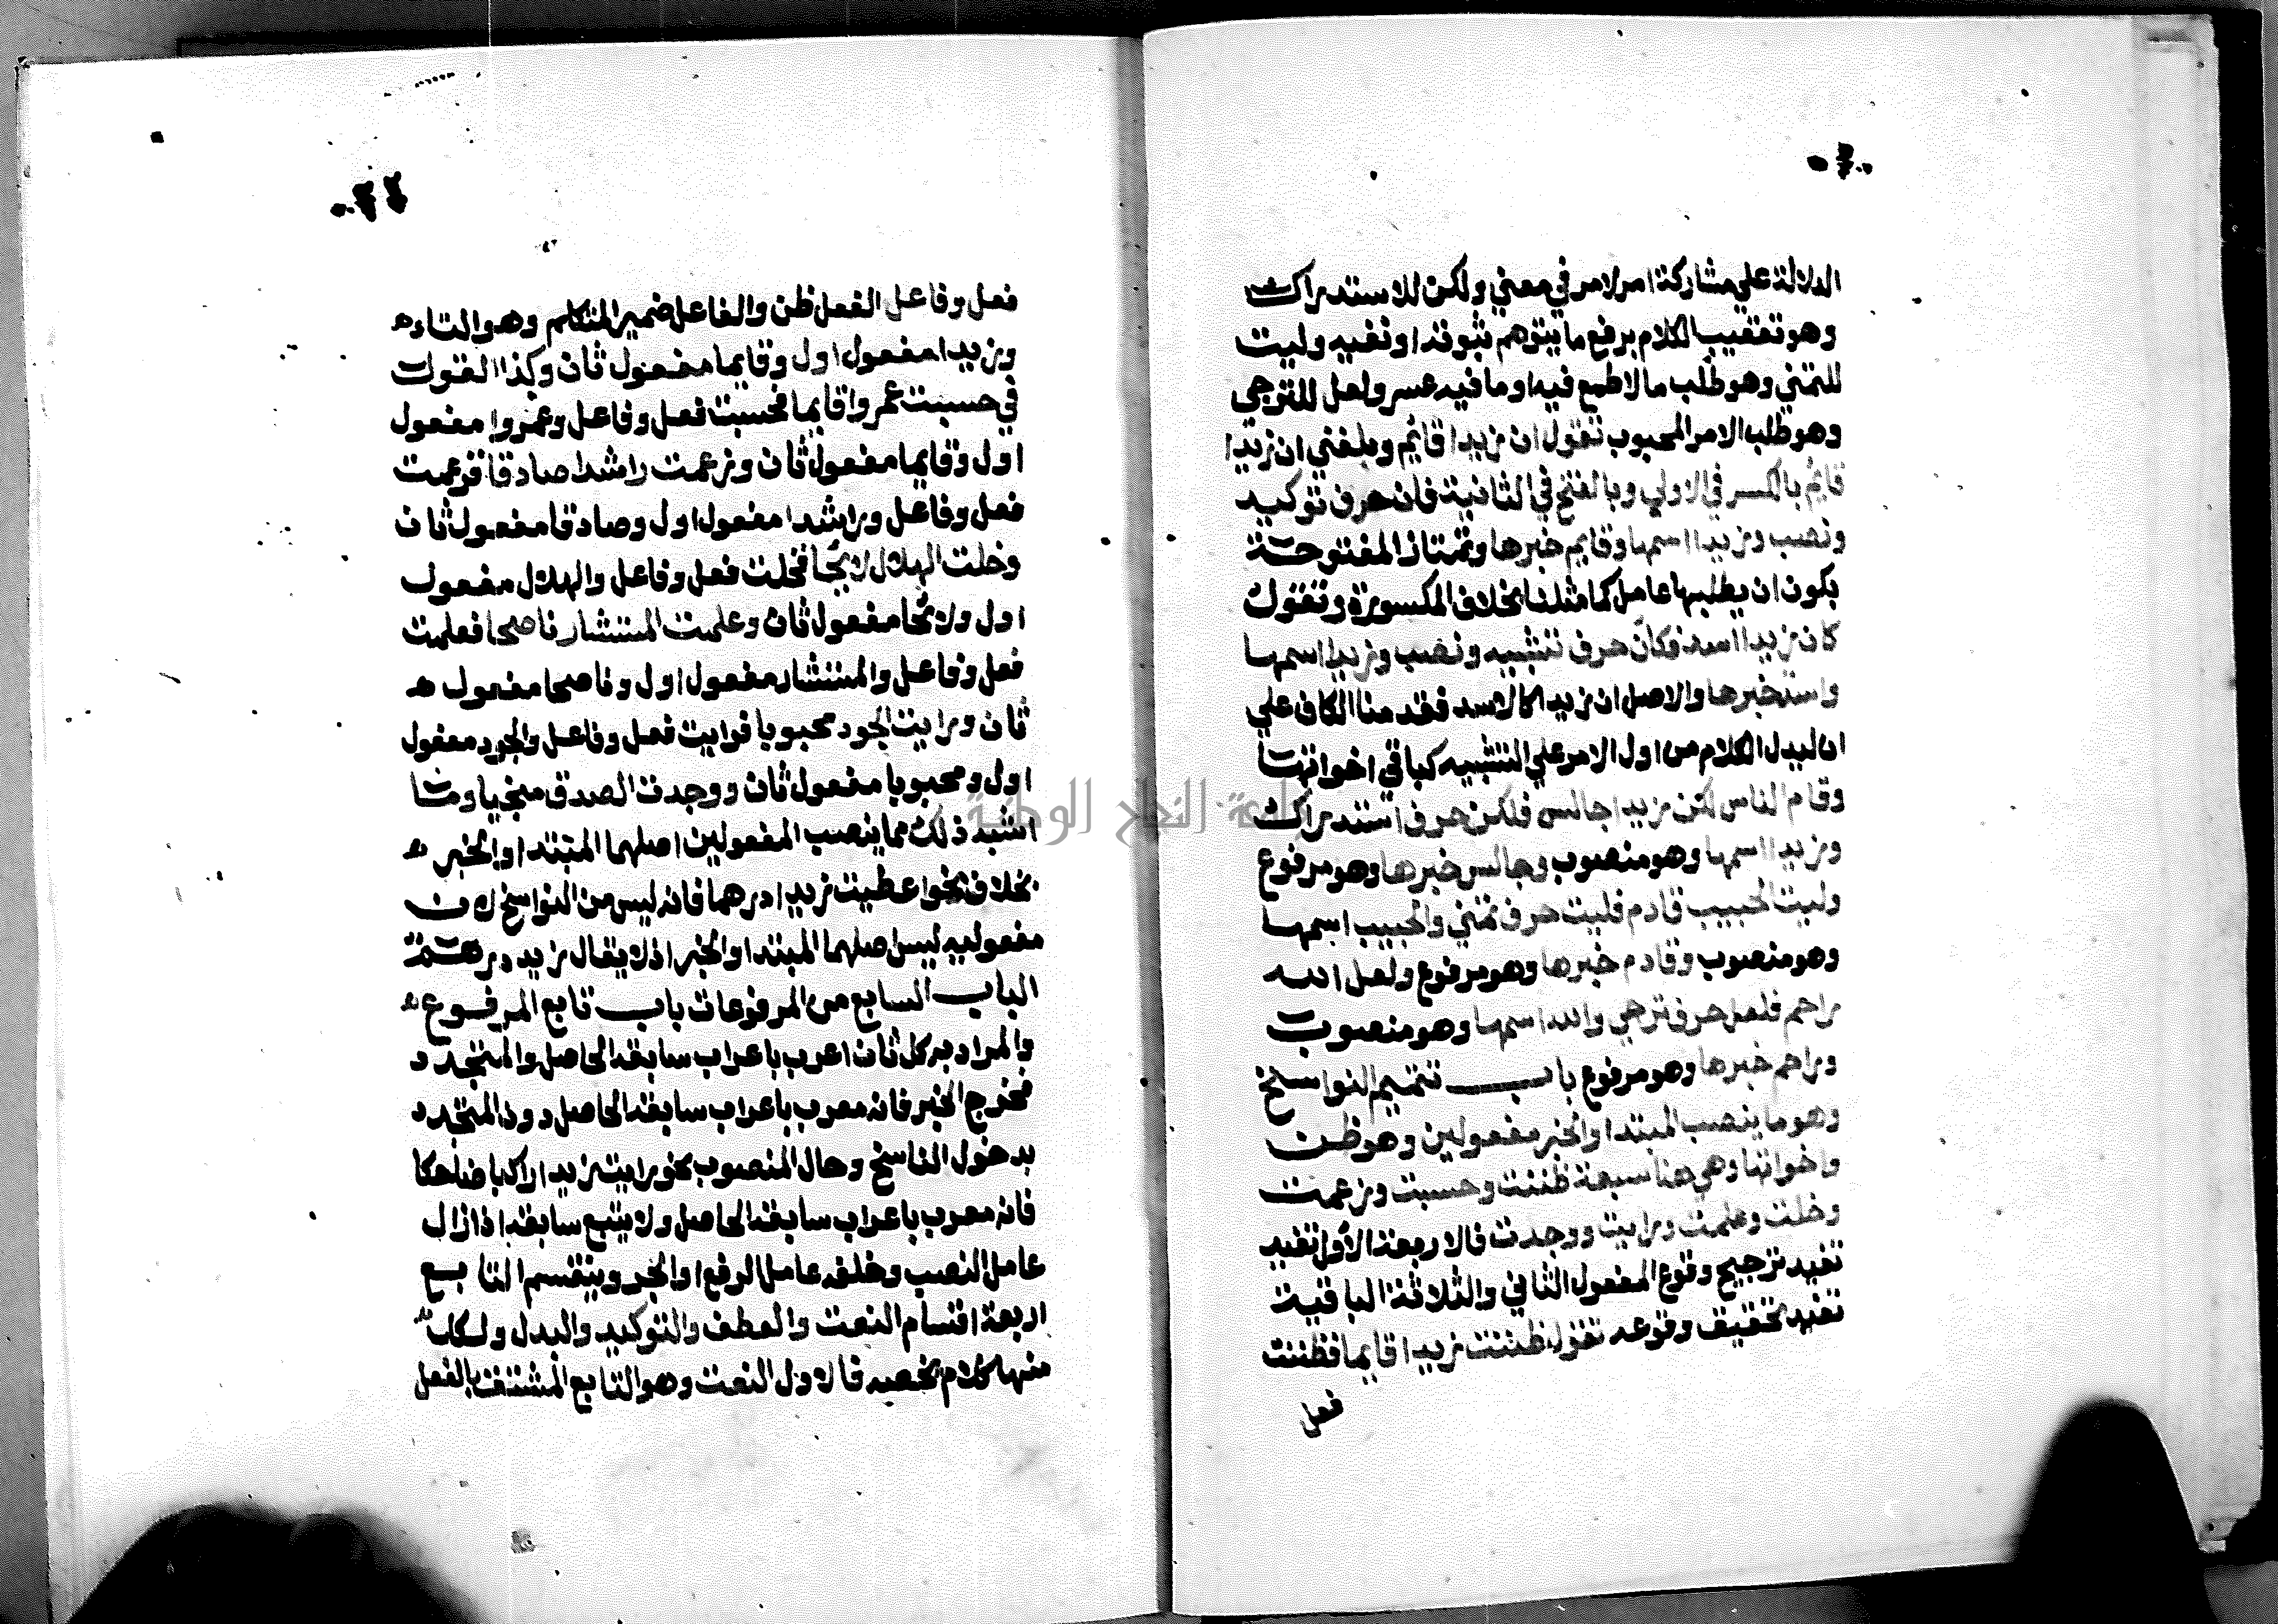 الدلالة علي مشاركة امر لامر في معني ولكن للاستدراك
وهو تعقيب الكلام برفع ما يتوهم ثبوته او نفيه وليت
للتمني وهو طلب ما لا طمع فيه او ما فيه عسر ولعل للترجي
وهو طلب الامر المحبوب تقول ان زيدا قائم وبلغني ان زيدا
قايم بالكسر في الاولي وبالفتح في الثانية فان حرف توكيد
ونصب وزيدا اسمها وقايم خبرها وتمتاز المفتوحة
بكون ان يطلبها عامل كما مثلنا بخلاف المكسورة وتقول
كان زيدا اسد فكأن حرف تشبيه ونصب وزيدا اسمها
واسد خبرها والاصل ان زيدا كالاسد فقدمنا الكاف علي
ان ليدل الكلام من اول الامر علي التشبيه كباقي اخواتها
وقام الناس لكن زيدا جالس فلكن حرف استدراك
وزيدا اسمها وهو منصوب وجالس خبرها وهو مرفوع
وليت الحبيب قادم فليت حرف تمني والحبيب اسمها
وهو منصوب وقادم خبرها وهو مرفوع ولعل الله
راحم فلعل حرف ترجي والله اسمها وهو منصوب
وراحم خبرها وهو مرفوع باب تتميم النواسخ
وهو ما ينصب المبتدا والخبر مفعولين وهو ظن
واخواتها وهي هنا سبعة ظننت وحسبت وزعمت
وخلت وعلمت ورايت ووجدت فالاربعة الأول تفيد
تفيد ترجيح وقوع المفعول الثاني والثلاثة الباقية
تفيد تحقيق وقوعه تقول ظننت زيدا قايما فظننت
فعل
فعل وفاعل الفعل ظن والفاعل ضمير المتكلم وهو التاء
وزيدا مفعول اول وقايما مفعول ثان وكذا القول
في حسبت عمروا قايما فحسبت فعل وفاعل وعمروا مفعول
اول وقايما مفعول ثان وزعمت راشدا صادقا فزعمت
فعل وفاعل وراشدا مفعول اول وصادقا مفعول ثان
وخلت الهلال لائحا فخلت فعل وفاعل والهلال مفعول
اول ولائحا مفعول ثان وعلمت المستشار ناصحا فعلمت
فعل وفاعل والمستشار مفعول اول وناصحا مفعول
ثان ورايت الجود محبوبا فرايت فعل وفاعل والجود معفول
اول ومحبوبا مفعول ثان ووجدت الصدق منجيا وما
اشبه ذلك مما ينصب المفعولين اصلهما المبتدا والخبر
بخلاف نحو اعطيت زيدا درهما فانه ليس من النواسخ لان
مفعوليه ليس اصلهما المبتدا والخبر اذ لا يقال زيد درهم
الباب السابع من المرفوعات باب تابع المرفوع
والمراد به كل ثان اعرب باعراب سابقه الحاصل والمتجدد
فخرج الخبر فانه معرب باعراب سابقه الحاصل دون المتجدد
بدخول الناسخ وحال المنصوب نحو رايت زيدا راكبا ضاحكا
فانه معرب باعراب سابقه الحاصل ولا يتبع سابقه اذا زال
عامل النصب وخلفه عامل الرفع او الجر وينقسم التابع
اربعة اقسام النعت والعطف والتوكيد والبدل ولكل
منها كلام يخصه فالاول النعت وهو التابع المشتق بالفعل